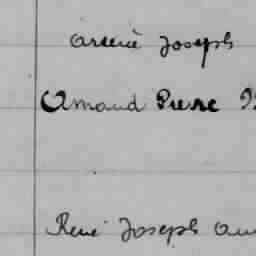 Arsene Joseph
Amand Pierre
René Joseph